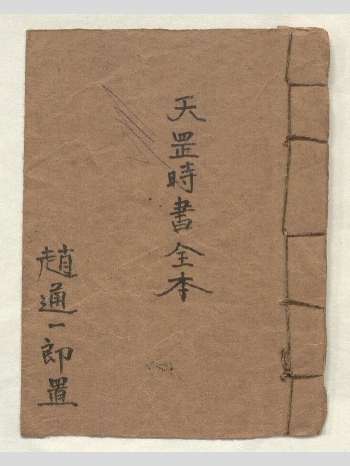 天罡時書全本
趙通一郎置